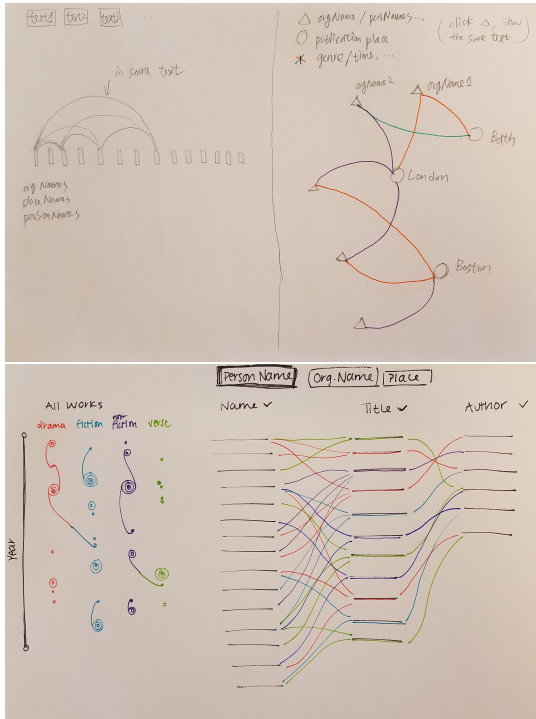 text1 text2 text ...
in same text
org Names
placeNames
personNames
△ orgName / persNames...
○ publication place
* genre/time, ...
(click △, show
the same text)
orgName2
orgName1
Bath
London
Boston
Person Name
Org. Name
Place
All Works
drama
fiction
non
fiction
verse
Year
Name ✓
Title ✓
Author ✓